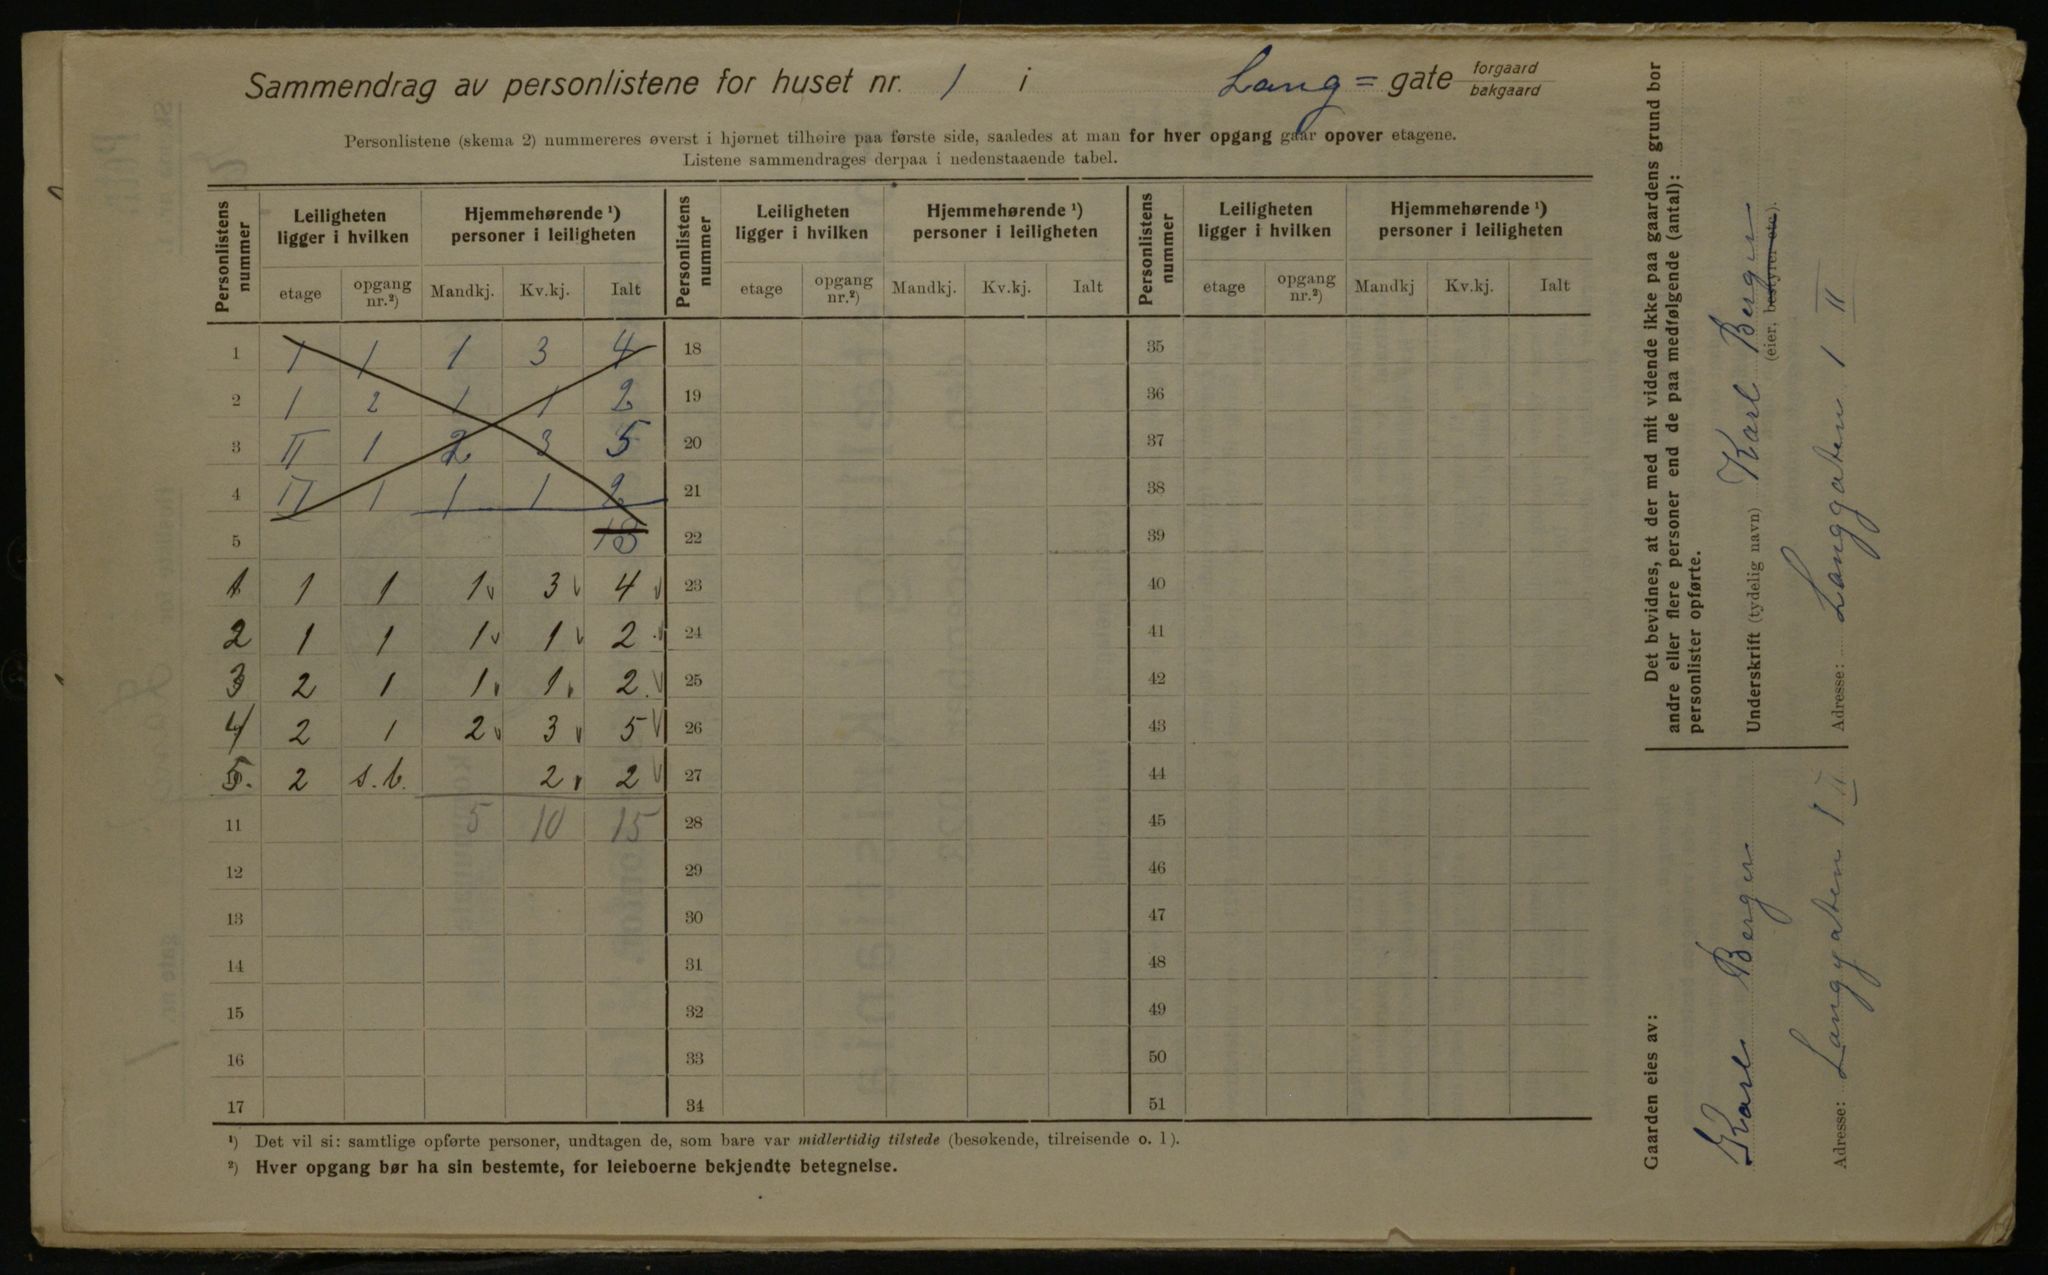 Sammendrag av personlistene for huset nr. 1 i Lang= gate forgaard
bakgaard
Personlistene (skema 2) nummereres øverst i hjørnet tilhøire paa første side, saaledes at man for hver opgang gaar opover etagene.
Listene sammendrages derpaa i nedenstaaende tabel.
Personlistens nummer | Leiligheten ligger i hvilken | Hjemmehørende ¹) personer i leiligheten | Personlistens nummer | Leiligheten ligger i hvilken | Hjemmehørende ¹) personer i leiligheten | Personlistens nummer | Leiligheten ligger i hvilken | Hjemmehørende ¹) personer i leiligheten
etage | opgang nr.²) | Mandkj. | Kv.kj. | Ialt | etage | opgang nr.²) | Mandkj. | Kv.kj. | Ialt | etage | opgang nr.²) | Mandkj | Kv.kj. | Ialt
1 | 1 | 1 | 1 | 3 | 4 | 18 | 35
2 | 1 | 2 | 1 | 1 | 2 | 19 | 36
3 | II | 1 | 2 | 3 | 5 | 20 | 37
4 | II | 1 | 1 | 1 | 2 | 21 | 38
5 | 13 | 22 | 39
1 | 1 | 1 | 1 | 3 | 4 | 23 | 40
2 | 1 | 1 | 1 | 1 | 2 | 24 | 41
3 | 2 | 1 | 1 | 1 | 2 | 25 | 42
4 | 2 | 1 | 2 | 3 | 5 | 26 | 43
5. | 2 | s.b. | 2 | 2 | 27 | 44
11 | 5 | 10 | 15 | 28 | 45
12 | 29 | 46
13 | 30 | 47
14 | 31 | 48
15 | 32 | 49
16 | 33 | 50
17 | 34 | 51
¹) Det vil si: samtlige opførte personer, undtagen de, som bare var midlertidig tilstede (besøkende, tilreisende o. l).
²) Hver opgang bør ha sin bestemte, for leieboerne bekjendte betegnelse.
Det bevidnes, at der med mit vidende ikke paa gaardens grund bor
andre eller flere personer end de paa medfølgende (antal):
personlister opførte.
Underskrift (tydelig navn) Karl Berger
(eier, bestyrer etc).
Adresse: Langgaten 1 II
Gaarden eies av:
Karl Berger
Adresse: Langgaten 1 II